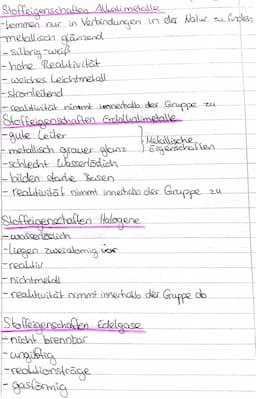 Stoffeigenschaften Alkalimetalle
- kommen nur in Verbindungen in der Natur zu finden
- metallisch glänzend
- silbrig-weiß
- hohe Reaktivität
- weiches Leichtmetall
- stromleitend
- reaktivität nimmt innerhalb der Gruppe zu
Stoffeigenschaften Erdalkalimetalle
- gute Leiter
- metallisch grauer glanz } Metallische Eigenschaften
- schlecht Wasserlöslich
- bilden starke Basen
- reaktivität nimmt innerhalb der Gruppe zu
Stoffeigenschaften Halogene
- wasserlöslich
- liegen zweiatomig vor
- reaktiv
- nichtmetall
- reaktivität nimmt innerhalb der Gruppe ab
Stoffeigenschaften Edelgase
- nicht brennbar
- ungiftig
- reaktionsträge
- gasförmig